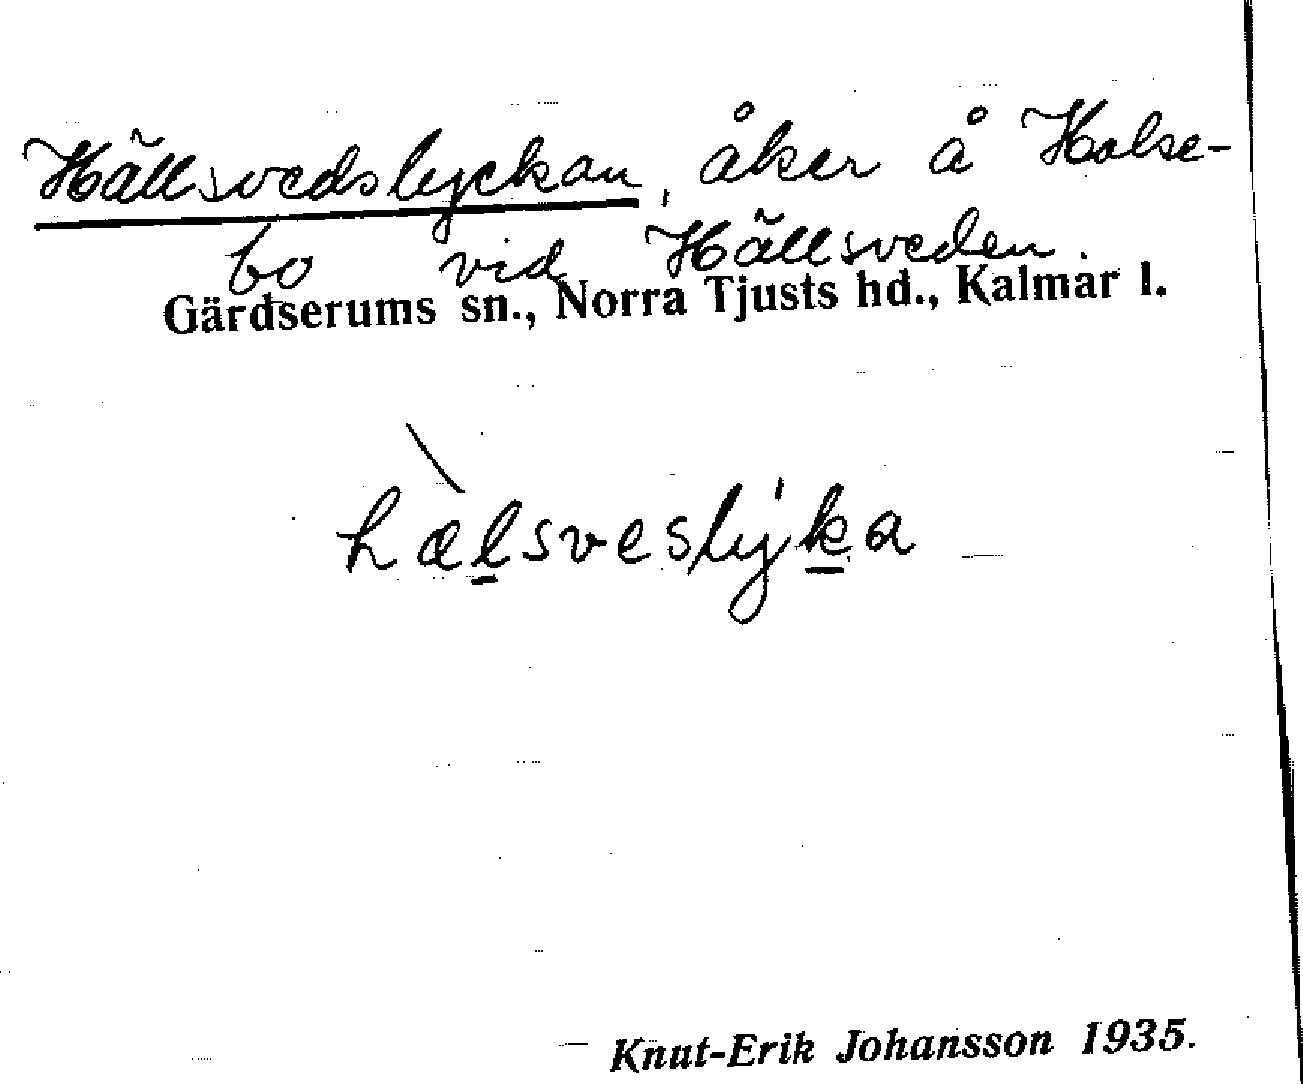 Hällsvedslyckan, åker å Holse-
bo vid Hällsveden.
Gärdserums sn., Norra Tjusts hd., Kalmar l.
hæ̀lsveslýka
Knut-Erik Johansson 1935.